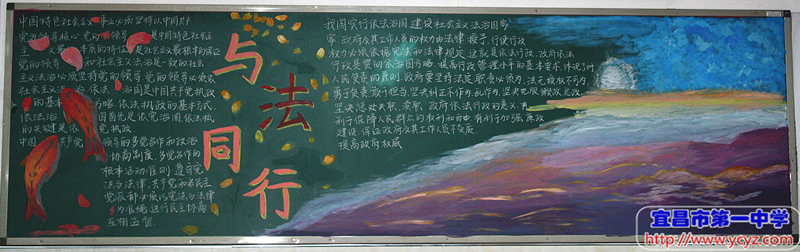 中国特色社会主义事业必须坚持以中国共产
党为领导核心 党的领导 是中国特色社会
主义最本质的特征 是社会主义最根本的保证
党的领导 和社会主义法治是一致的社会
主义法治必须坚持党的领导 党的领导必须依
社会主义法治 依法 治国是中国共产党执政
的基本 方略 依法执政的基本方式
依法治 国首先是依宪治国 依法执
政关键是依 宪执政
中国共产党 领导的多党合作和政治
协商制度 多党合作的
根本活动准则 遵守宪
法与法律 共产党和各民主
党派都必须以宪法与法律
为准绳 进行民主协商
互相监督
与法
同行
我国实行依法治国 建设社会主义法治国
家 政府及其工作人员的权力由法律授予 行使行政
权力必依据宪法和法律规定 这就是依法行政 政府依法
行政是贯彻依法治国方略 提高行政管理水平的基本要求 体现了对
人民负责的原则 政府要坚持法定职责必须为 法无授权不可为
勇于负责 敢于担当 坚决纠正不作为 乱作为 坚决克服懒政 怠政
坚决惩处失职 渎职 政府依法行政的意义 有
利于保障人民群众的权利和自由 有利于加强廉政
建设 保证政府及其工作人员不变质
提高政府权威
宜昌市第一中学
http://www.ycyz.com